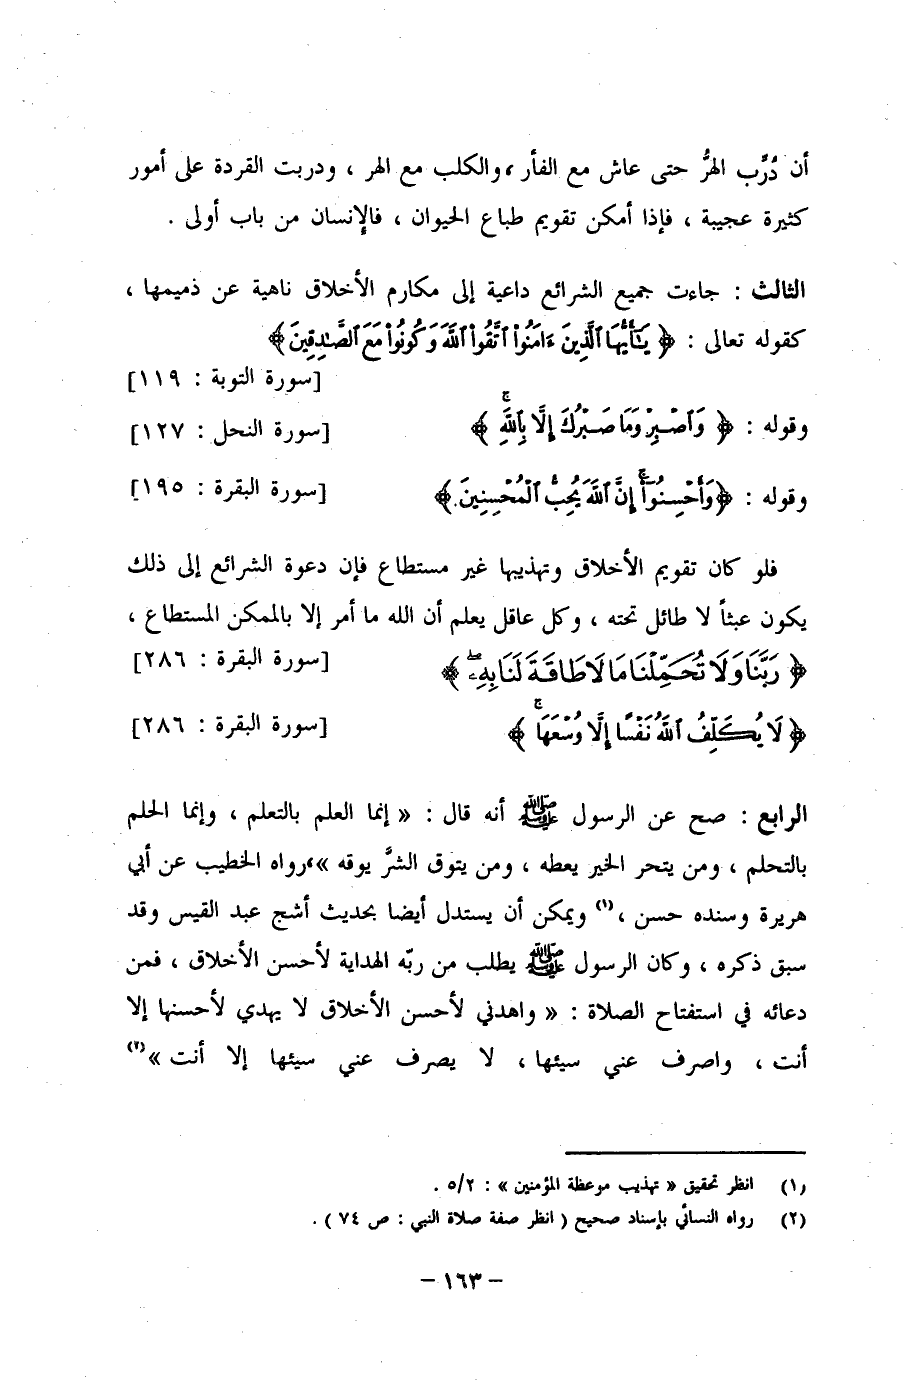 أن دُرِّب الهرُّ حتى عاش مع الفأر ، والكلب مع الهر ، ودربت القردة على أمور
كثيرة عجيبة ، فإذا أمكن تقويم طباع الحيوان ، فالإنسان من باب أولى .
الثالث : جاءت جميع الشرائع داعية إلى مكارم الأخلاق ناهية عن ذميمها ،
كقوله تعالى : ﴿ يَٰٓأَيُّهَا ٱلَّذِينَ ءَامَنُوا۟ ٱتَّقُوا۟ ٱللَّهَ وَكُونُوا۟ مَعَ ٱلصَّٰدِقِينَ ﴾
[سورة التوبة : ١١٩]
وقوله : ﴿ وَٱصْبِرْ وَمَا صَبْرُكَ إِلَّا بِٱللَّهِ ۚ ﴾ [سورة النحل : ١٢٧]
وقوله : ﴿ وَأَحْسِنُوٓا۟ ۛ إِنَّ ٱللَّهَ يُحِبُّ ٱلْمُحْسِنِينَ ﴾ [سورة البقرة : ١٩٥]
فلو كان تقويم الأخلاق وتهذيبها غير مستطاع فإن دعوة الشرائع إلى ذلك
يكون عبثاً لا طائل تحته ، وكل عاقل يعلم أن الله ما أمر إلا بالممكن المستطاع ،
﴿ رَبَّنَا وَلَا تُحَمِّلْنَا مَا لَا طَاقَةَ لَنَا بِهِۦ ۖ ﴾ [سورة البقرة : ٢٨٦]
﴿ لَا يُكَلِّفُ ٱللَّهُ نَفْسًا إِلَّا وُسْعَهَا ۚ ﴾ [سورة البقرة : ٢٨٦]
الرابع : صح عن الرسول ﷺ أنه قال : « إنما العلم بالتعلم ، وإنما الحلم
بالتحلم ، ومن يتحر الخير يعطه ، ومن يتوق الشرَّ يوقه » ، رواه الخطيب عن أبي
هريرة وسنده حسن ،(١) ويمكن أن يستدل أيضا بحديث أشج عبد القيس وقد
سبق ذكره ، وكان الرسول ﷺ يطلب من ربّه الهداية لأحسن الأخلاق ، فمن
دعائه في استفتاح الصلاة : « واهدني لأحسن الأخلاق لا يهدي لأحسنها إلا
أنت ، واصرف عني سيئها ، لا يصرف عني سيئها إلا أنت »(٢)
(١) انظر تحقيق « تهذيب موعظة المؤمنين » : ٥/٢ .
(٢) رواه النسائي بإسناد صحيح ( انظر صفة صلاة النبي : ص ٧٤ ) .
– ١٦٣ –